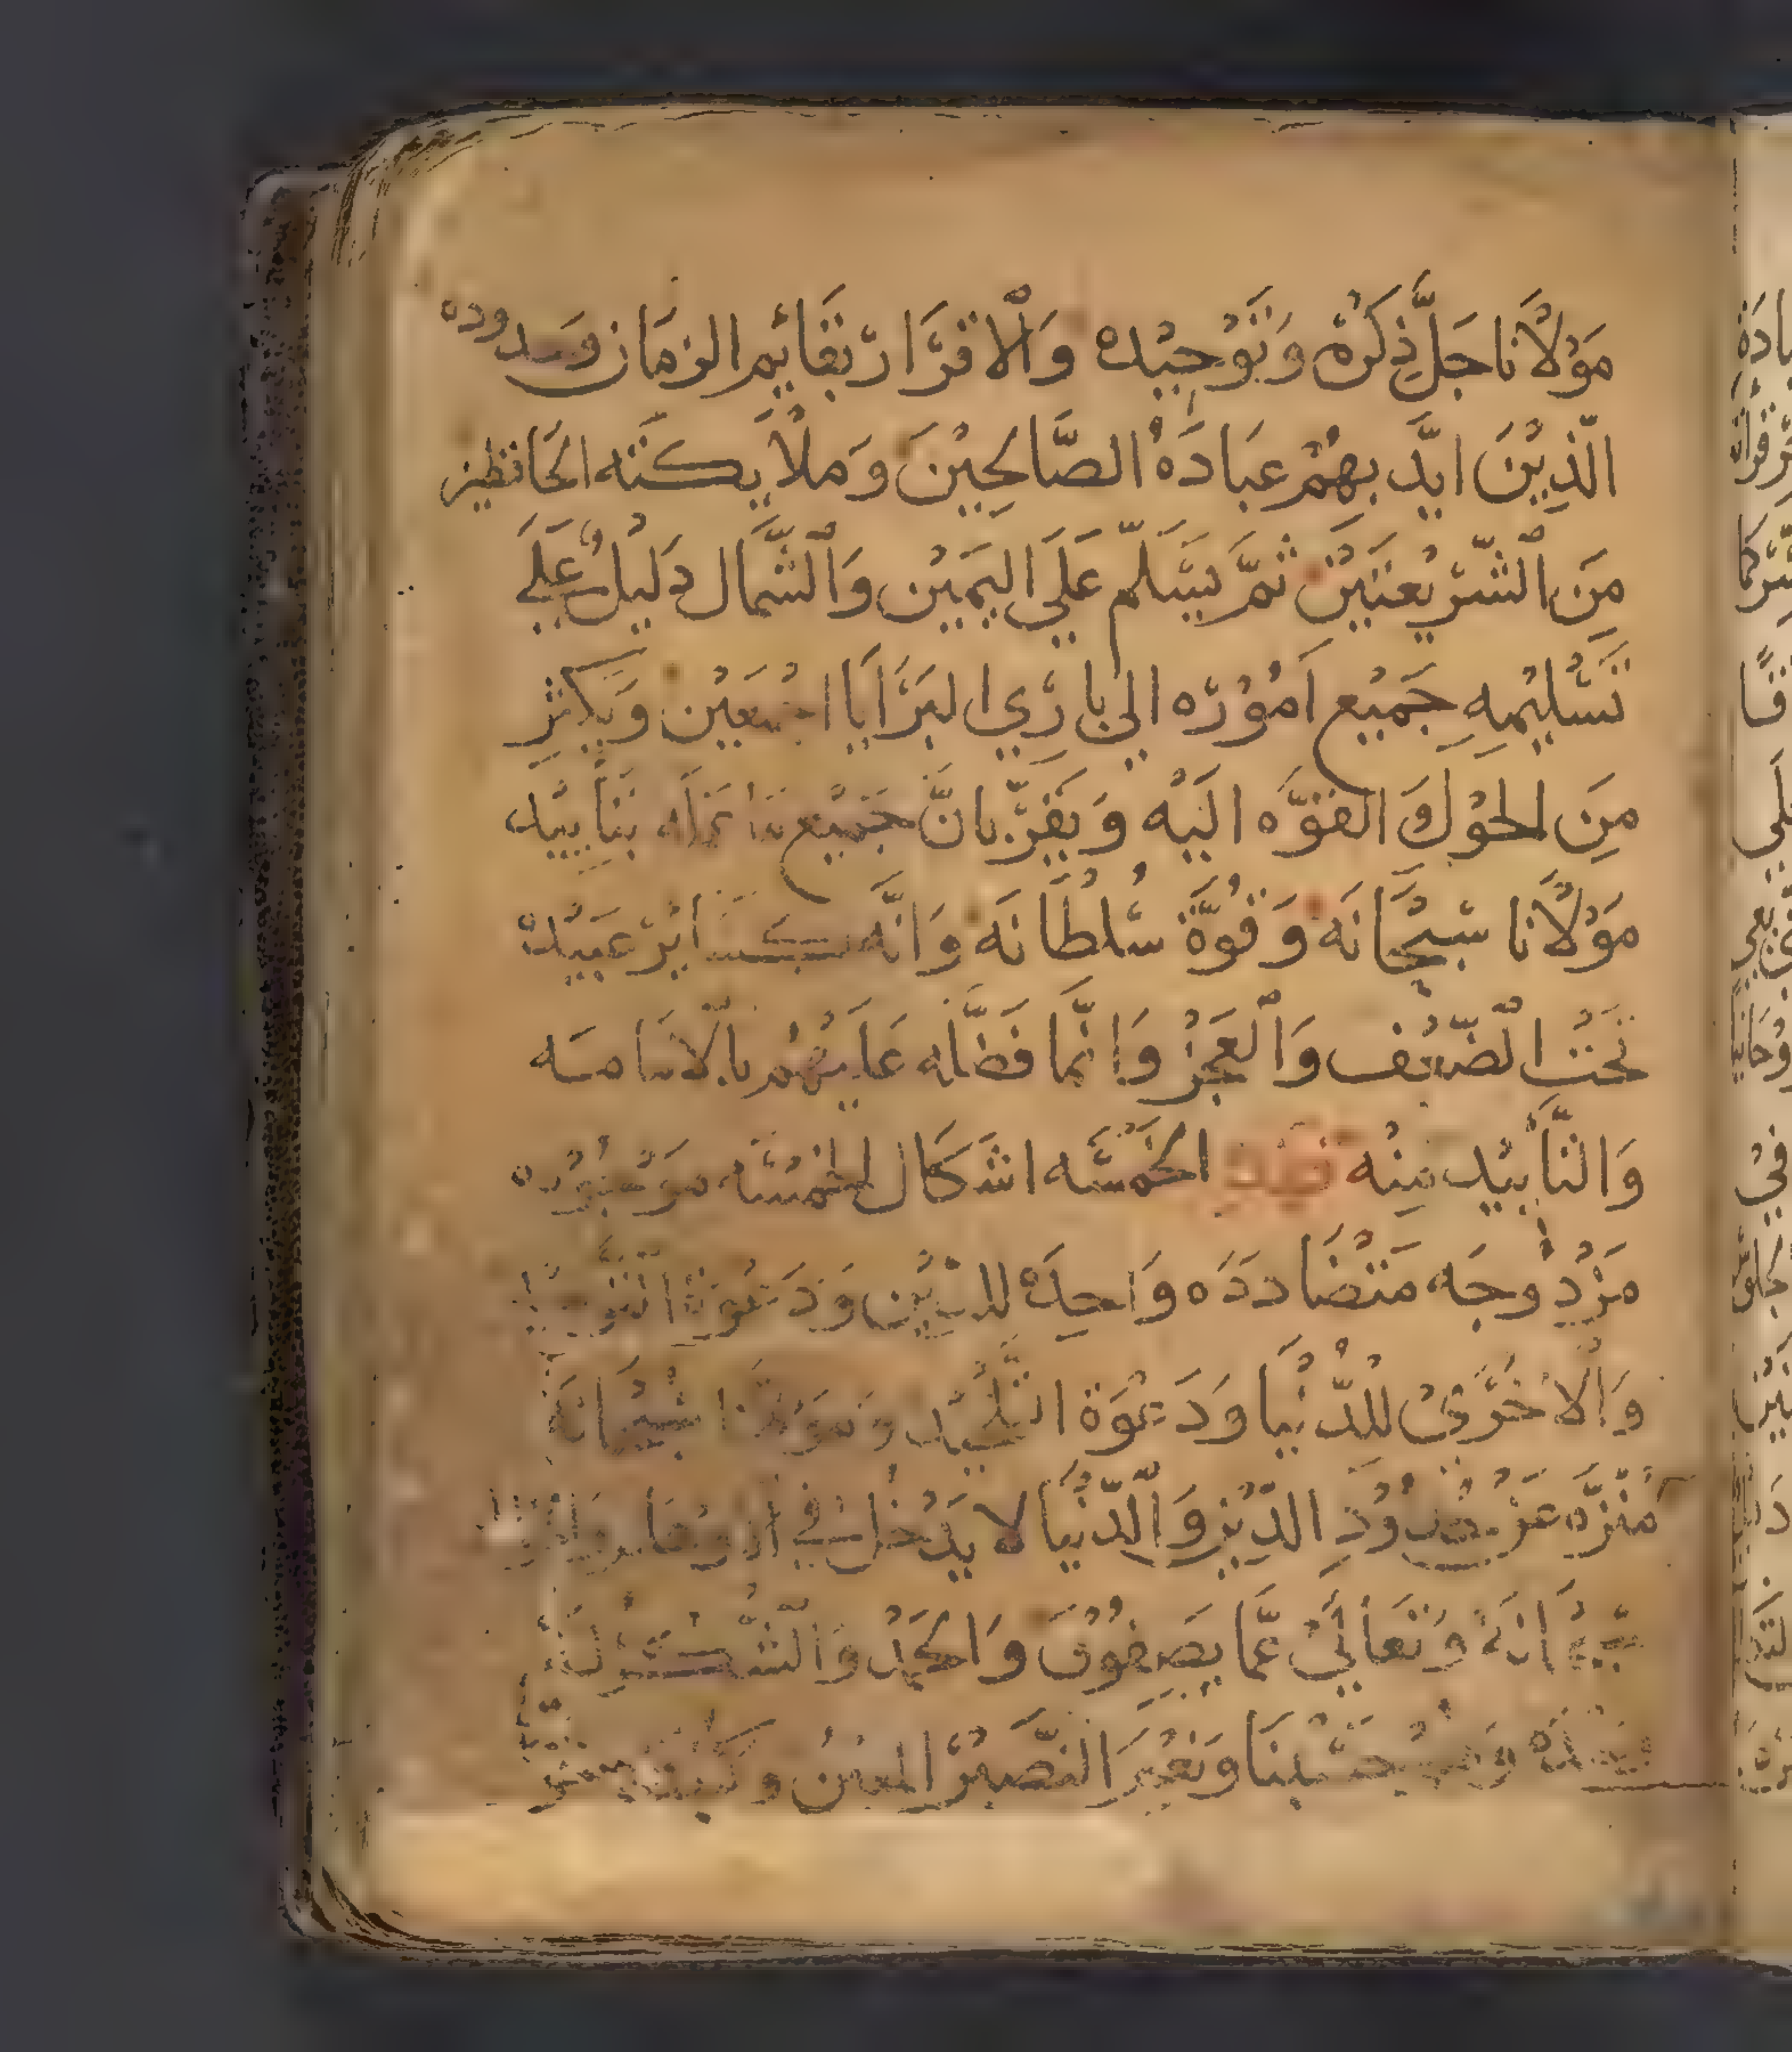 مَوْلَانَا جَلَّ ذِكْرُهْ وَتَوْحِيْدِه وَالْاقرَّار بقَائِم الزمَان وحدوده
الّذِيْنَ ايَّد بِهِمْ عبَادَهْ الصَّالحِيْنَ وَملَايكتَه الحَافظين
مِنَ الْشّرِيْعتَيْنِ ثمَّ يسَّلّم عَلَي اليَمِيْن وَالْشّمَال دَلِيْلٌ عَلَي
تَسْلِيْمِهِ جَمِيْع اَمُوْره الي بَارِي البَرَايَا اجْمَعِيْن وَيكثِر
مِنَ الحَوْل وَ القوَّه اليَهْ وَيقرّ بانَّ جَمِيْع بتَأييْد
مَوْلَانَا سُبْحَانَه وَقُوَّة سُلْطَانَه وَانَّه كسَايْر عَبيْدهْ
تَحْت الْضّعْف وَالْعَجْز وَانَّما فَضَّله عَليْهُم بالْامَامَه
وَالتَّأييْد مِنْه ضد الخَمْسَه اشكَال الخمْسَه مَوْجُوْده
مزْدوجَه متَضَاددَه وَاحِدَهْ للدّيْن وَدَعْوَة
وَالْاخْرَىْ للدُّنْيَا وَدَعْوَة التَّلْحِيْد وَمَوْلَانَا سُبْحَانَهْ
مُنَزَّه عَنْ حُدُوْدِ الدّيْن وَالْدُّنْيَا لَا يَدْخُل فِي
سُبْحَانَهْ وَتعَالَيْ عَمَّا يَصِفُوْنَ وَالحَمْدُ وَالشُّكْرُ لَهُ
وَحْدَهْ وَهُوْ حسْبُنَا وَنِعْمَ النَّصِيْرُ المعِيْنُ